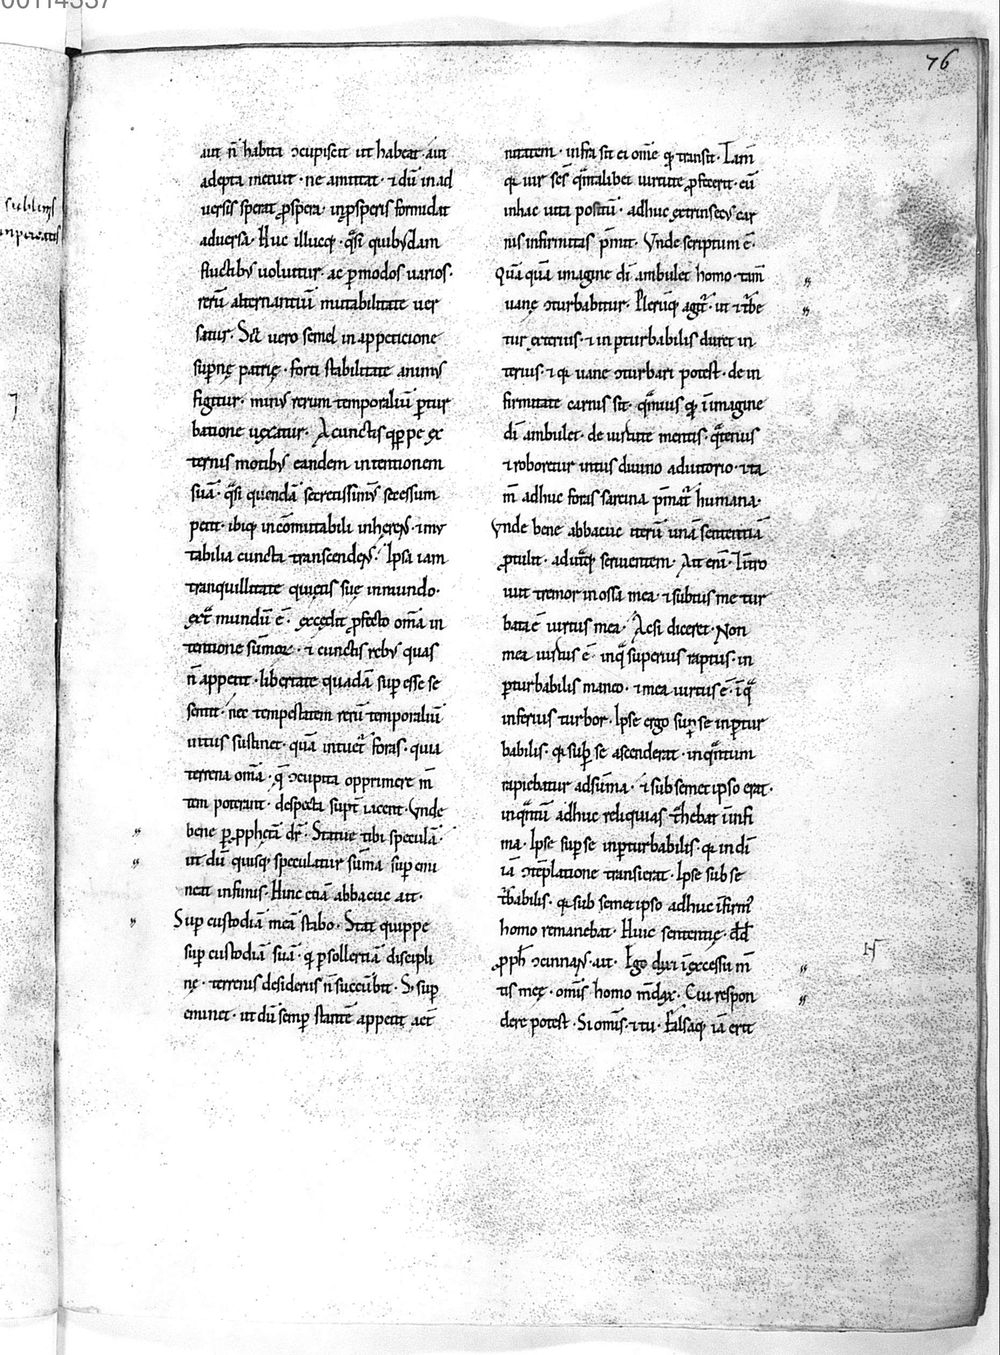 00114337
76
sublimis
aut n̄ habita ɔcupiscit ut habeat · aut
adepta metuit · ne amittat · ⁊ dū in ad
versis sperat ꝓspera · in ꝓsperis formidat
adversa · Huc illucq; · q̄si quibusdam
fluctibus voluitur · ac ꝑ modos varios ·
rerū alternantiū mutabilitate ver
satur · Sꝫ vero semel in appeticione
supnę patrię · forti stabilitate animus
figitur · minus rerum temporaliū ꝑtur
batione vexatur · A cunctis q̄ppe ex
ternis motibus eandem intentionem
suā · q̄si quendā secretissimū secessum
petit · ibiq; incōmutabili inherens · ⁊ mu
tabilia cuncta transcendens · Ipsa iam
tranquillitate quietis suę in mundo ·
ext̄ mundū ē · excędit ꝓfecto om̄a in
tentione sūmoꝝ · ⁊ cunctis rebus quas
n̄ appetit · libertate quadā sup esse se
sentit · nec tempestatem rerū temporaliū
intus sustinet · quā intuet̄ foras · quia
terrena om̄a · q̄ ɔcupita opprimere m̄
tem poterant · despecta supt̄ iacent · Unde
bene ꝑ ꝓphetā dr̄ · Statue tibi speculā ·
ut dū quisq; speculatur sūma · sup emi
neat infimis · Hinc etiā abbacuc ait ·
Sup custodiā meā stabo · Stat quippe
sup custodiā suā · q̄ ꝑ sollertiā discipli
nę · terrenis desideriis n̄ succūbit · S; sup
eminet · ut dū semꝑ stantē appetit aet̄
nitatem · infra sit ei om̄e q̄ transit · Iam
q̄ vir sc̄s q̄ntalibet virtute ꝓfecerit · eū
in hac vita positū · adhuc extrinsecus car
nis infirmitas p̄mit · Unde scriptum ē ·
Quā quā imagine dī ambulet homo · tam̄
vane ɔturbabitur · Plerūq; agit̄ · ut ⁊ t̄be
tur exterius · ⁊ inꝑturbabilis duret in
terius · ⁊ q̄ vane ɔturbari potest · de in
firmitate carnis sit · q̄mvis q̄ ī imagine
dī ambulet · de virtute mentis · q̄tenus
⁊ roboretur intus divino adiutorio · ⁊ ta
m̄ adhuc foras sarcina p̄mat̄ humana ·
Unde bene abbacuc iterū unā sententiā
ꝓtulit · ad utq̄; servientem · Ait eni · Int̄o
ivit tremor in ossa mea · ⁊ subtus me tur
bata ē virtus mea · Ac si diceret · Non
mea virtus ē · in q̄ superius raptus · in
ꝑturbabilis maneo · ⁊ mea virtus ē · ī q̄
inferius turbor · Ipse ergo sup se inꝑtur
babilis · q̄ sup se ascenderat · in q̄ntum
rapiebatur ad sūma · ⁊ sub semet ipso erat ·
in q̄ntū adhuc reliquias t̄hebat ī infi
ma · Ipse sup se inꝑturbabilis · q̄ in dī
iā ɔtēplatione transierat · Ipse sub se
t̄babilis · q̄ sub semet ipso adhuc īfirm̄
homo remanebat · Huic sententię · d̄d
ꝓph̄ ɔcinnans · ait · Ego dixi ī excessu m̄
tis męę · omīs homo m̄dax · Cui respon
dere potest · Si omīs · ⁊ tu · Falsaq; iā erit